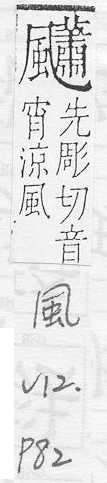 先彫切音
宵涼風
風
V12.
P82